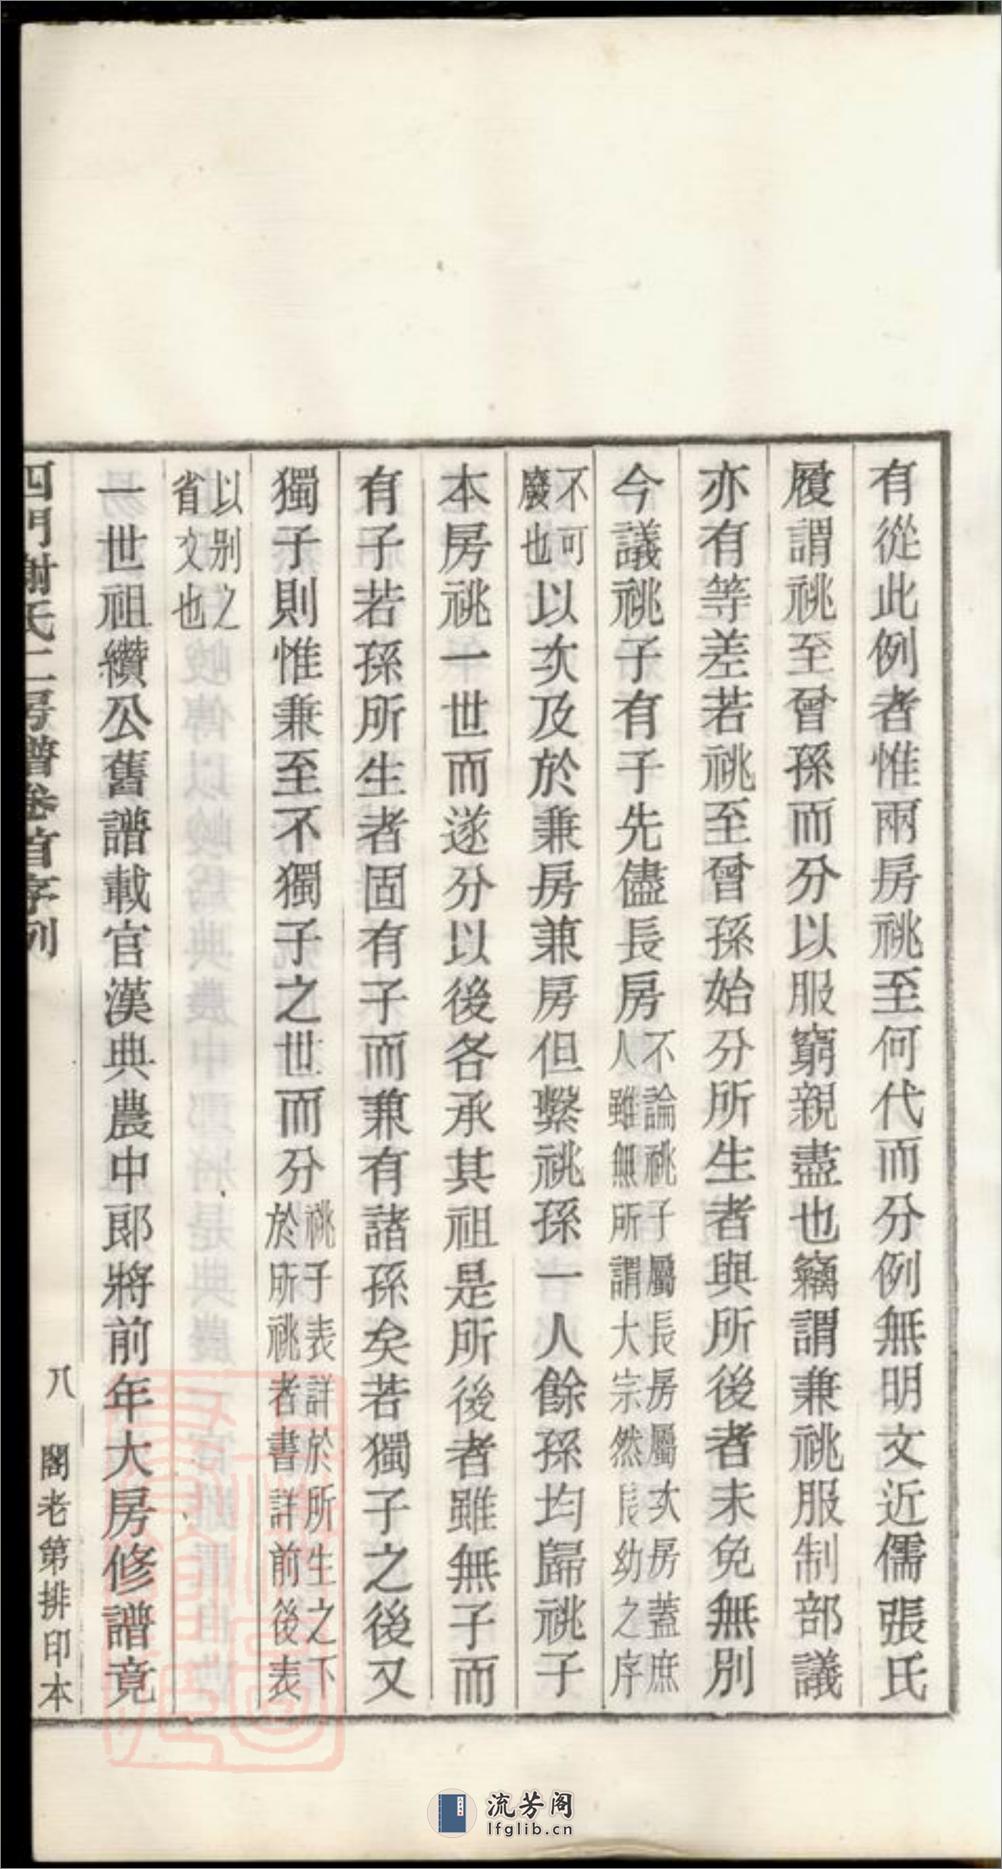 有從此例者惟兩房祧至何代而分例無明文近儒張氏
履謂祧至曾孫而分以服窮親盡也竊謂兼祧服制部議
亦有等差若祧至曾孫始分所生者與所後者未免無別
今議祧子有子先儘長房不論祧子屬長房屬次房蓋庶
人雖無所謂大宗然長幼之序
不可
廢也以次及於兼房兼房但繫祧孫一人餘孫均歸祧子
本房祧一世而遂分以後各承其祖是所後者雖無子而
有子若孫所生者固有子而兼有諸孫矣若獨子之後又
獨子則惟兼至不獨子之世而分祧子表詳於所生之下
於所祧者書詳前後表
以別之
省文也
一世祖纘公舊譜載官漢典農中郎將前年大房修譜竟
四門謝氏二房譜卷首序例
八
閣老第排印本
流芳阁
lfglib.cn